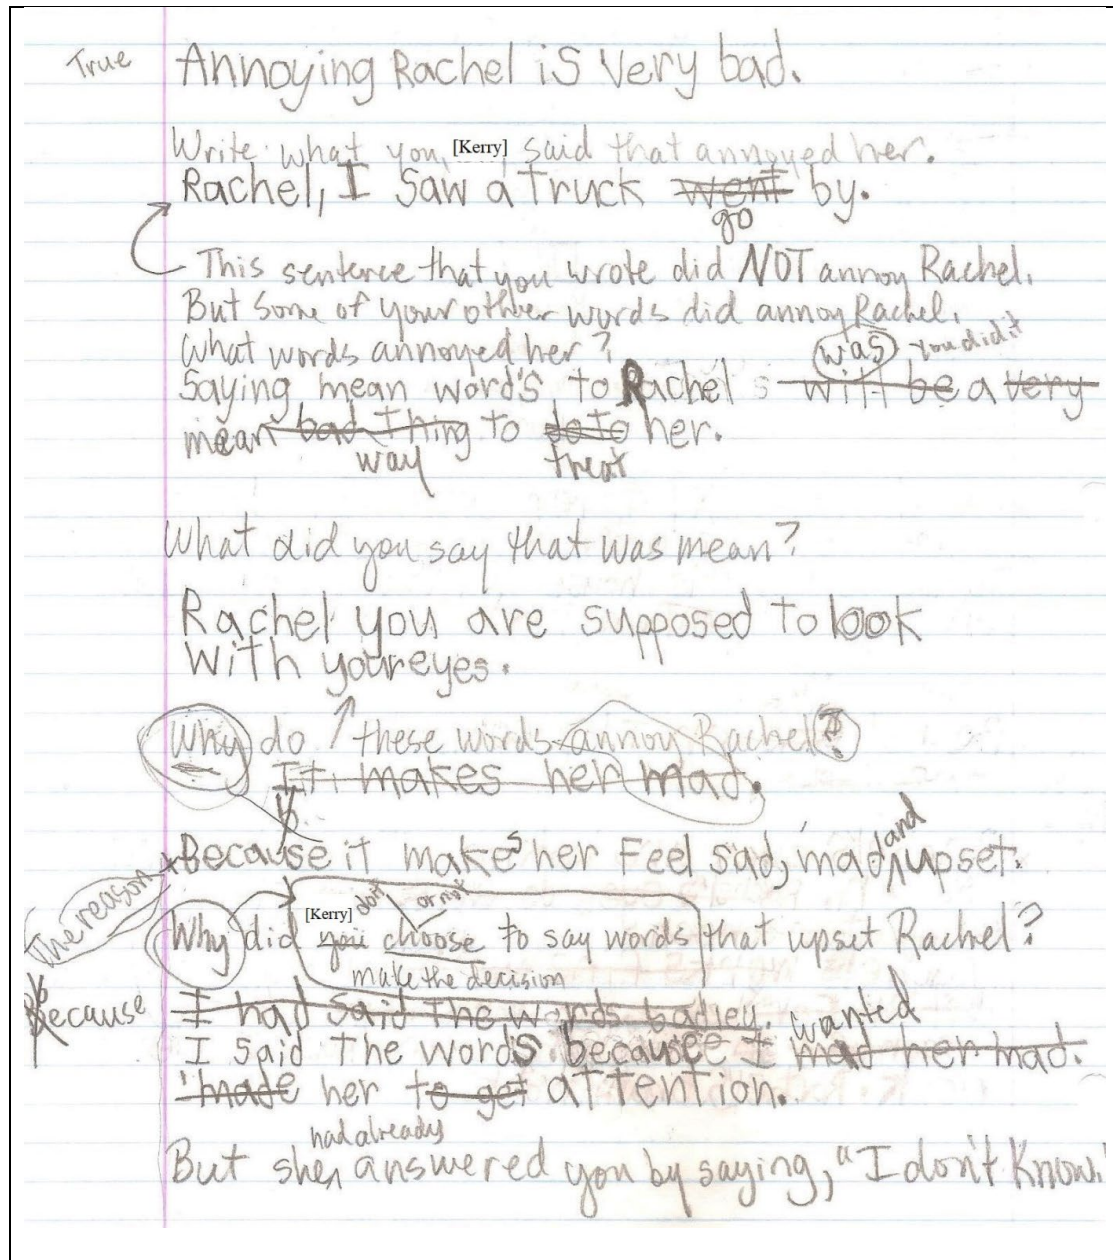 True Annoying Rachel is very bad.
Write what you, [Kerry] said that annoyed her.
Rachel, I saw a truck went by.
go
This sentence that you wrote did NOT annoy Rachel.
But some of your other words did annoy Rachel.
What words annoyed her?
was you did it
Saying mean word's to Rachel's will be a very
mean bad thing to do to her.
way treat
What did you say that was mean?
Rachel you are supposed to look
with your eyes.
Why do these words annoy Rachel?
It makes her mad.
and
Because it makes her Feel sad, mad, upset.
The reason
[Kerry] or not
Why did you choose to say words that upset Rachel?
make the decision
Because I had said the words badley. wanted
I said the words because I mad her mad.
made her to get attention.
had already
But she answered you by saying, "I don't know."